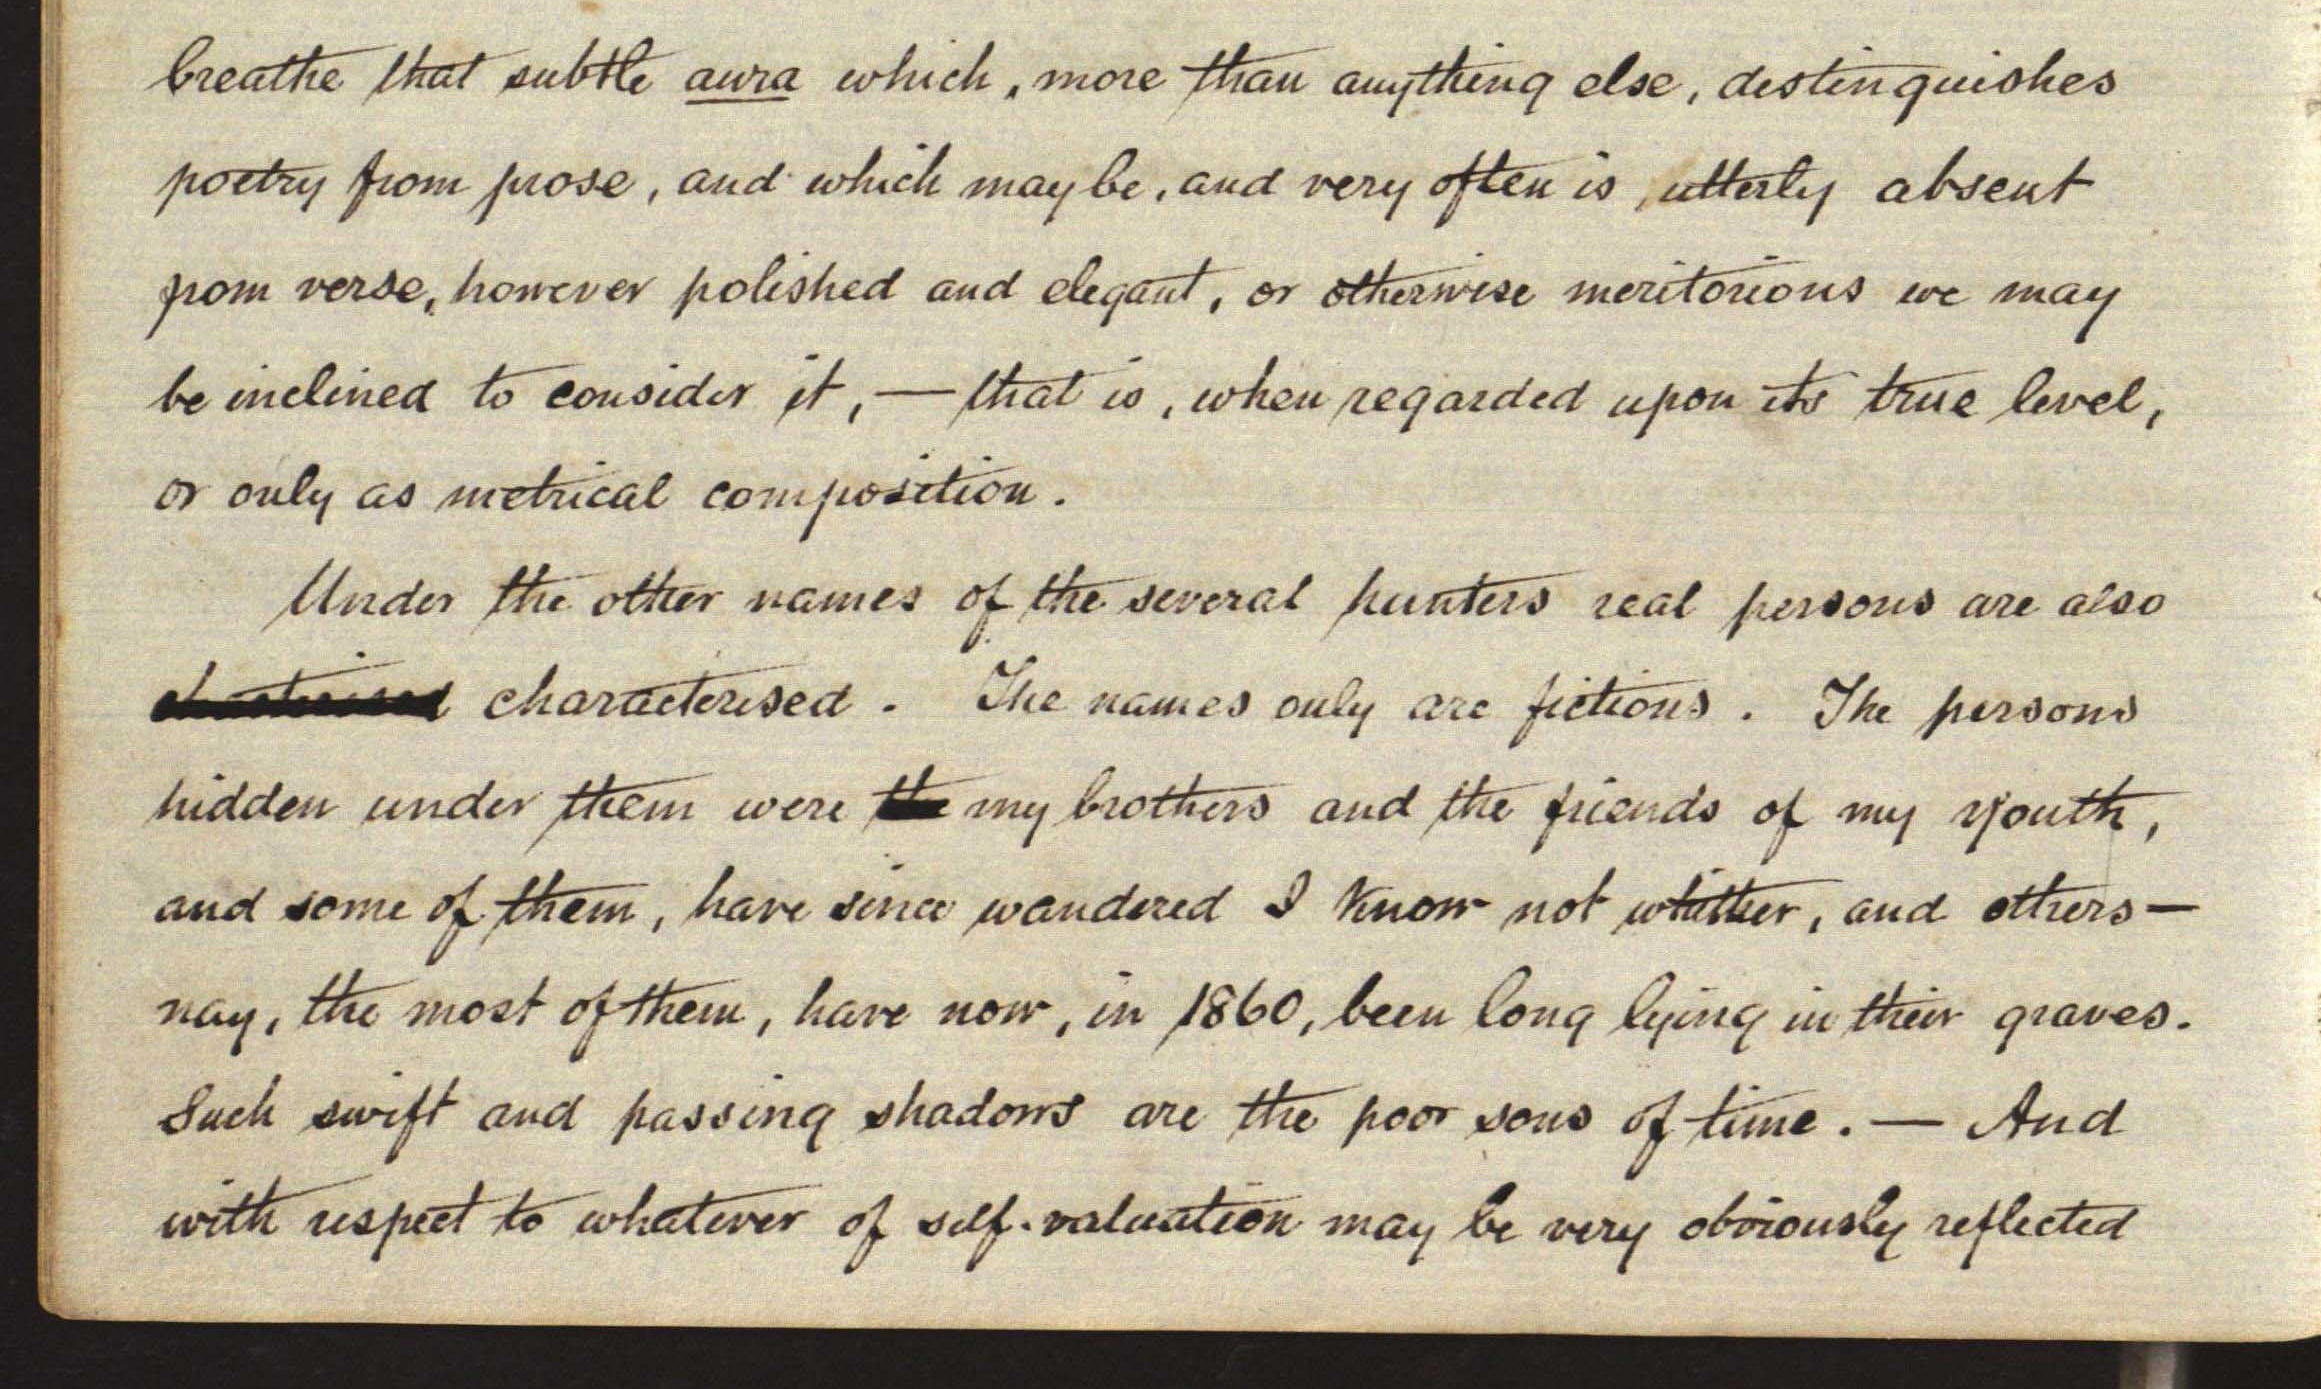 breathe that subtle aura which, more than anything else, distinguishes
poetry from prose, and which may be, and very often is, utterly absent
from verse, however polished and elegant, or otherwise meritorious we may
be inclined to consider it, — that is, when regarded upon its true level,
or only as metrical composition.
Under the other names of the several hunters real persons are also
characterised. The names only are fictions. The persons
hidden under them were the my brothers and the friends of my youth,
and some of them, have since wandered I know not whither, and others —
nay, the most of them, have now, in 1860, been long lying in their graves.
Such swift and passing shadows are the poor sons of time. — And
with respect to whatever of self-valuation may be very obviously reflected